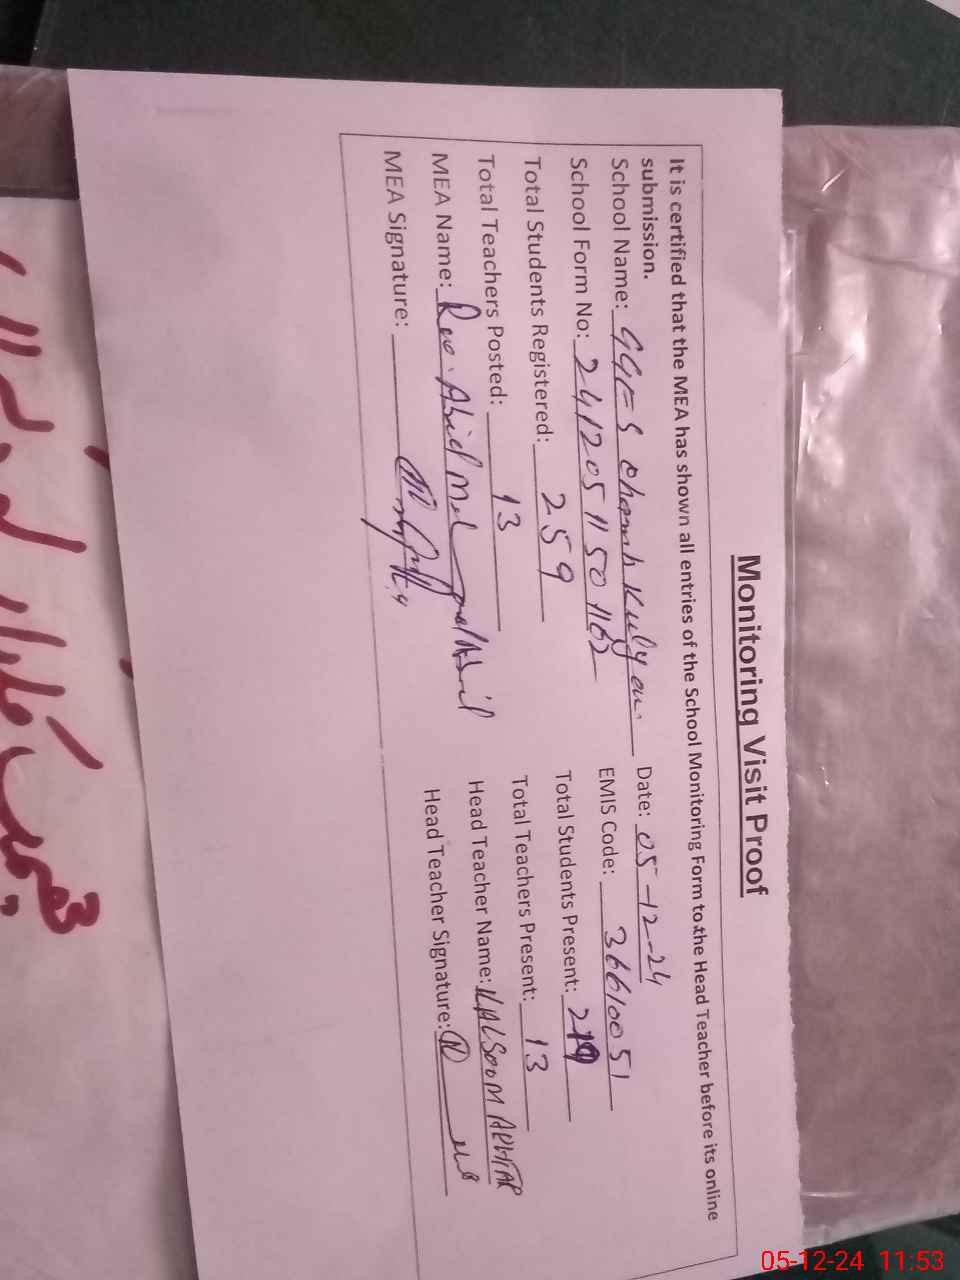 Monitoring Visit Proof
It is certified that the MEA has shown all entries of the School Monitoring Form to the Head Teacher before its online
submission.
School Name: GGES Chamb Kulyar Date: 05-12-24
School Form No: 24120511501162 EMIS Code: 36610051
Total Students Registered: 259 Total Students Present: 219
Total Teachers Posted: 13 Total Teachers Present: 13
MEA Name: Rao Abid Head Teacher Name: KALSOOM AKHTAR
MEA Signature: Head Teacher Signature:
05-12-24 11:53